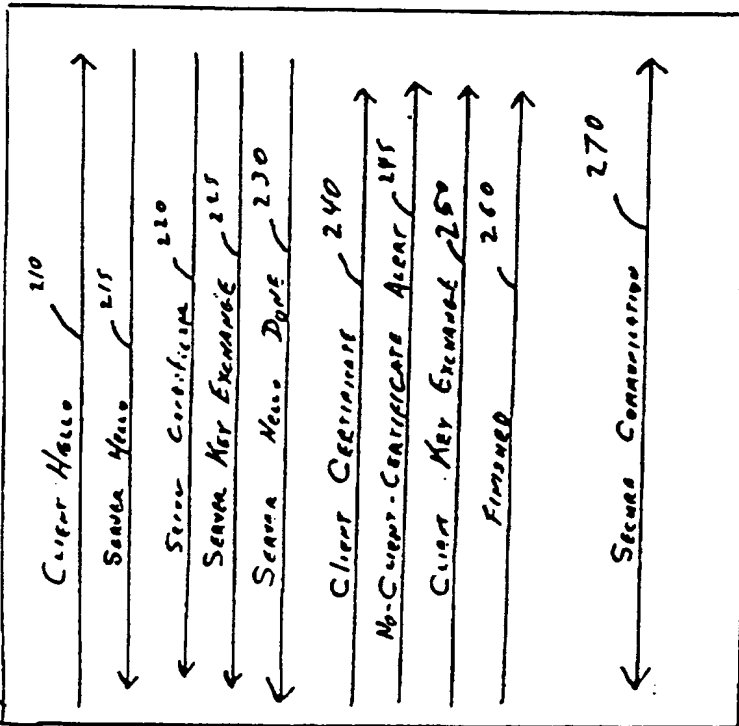 CLIENT HELLO 210
SERVER HELLO 215
SERVER CERTIFICATE 220
SERVER KEY EXCHANGE 225
SERVER HELLO DONE 230
CLIENT CERTIFICATE 240
NO-CLIENT-CERTIFICATE ALERT 245
CLIENT KEY EXCHANGE 250
FINISHED 260
SECURE COMMUNICATION 270